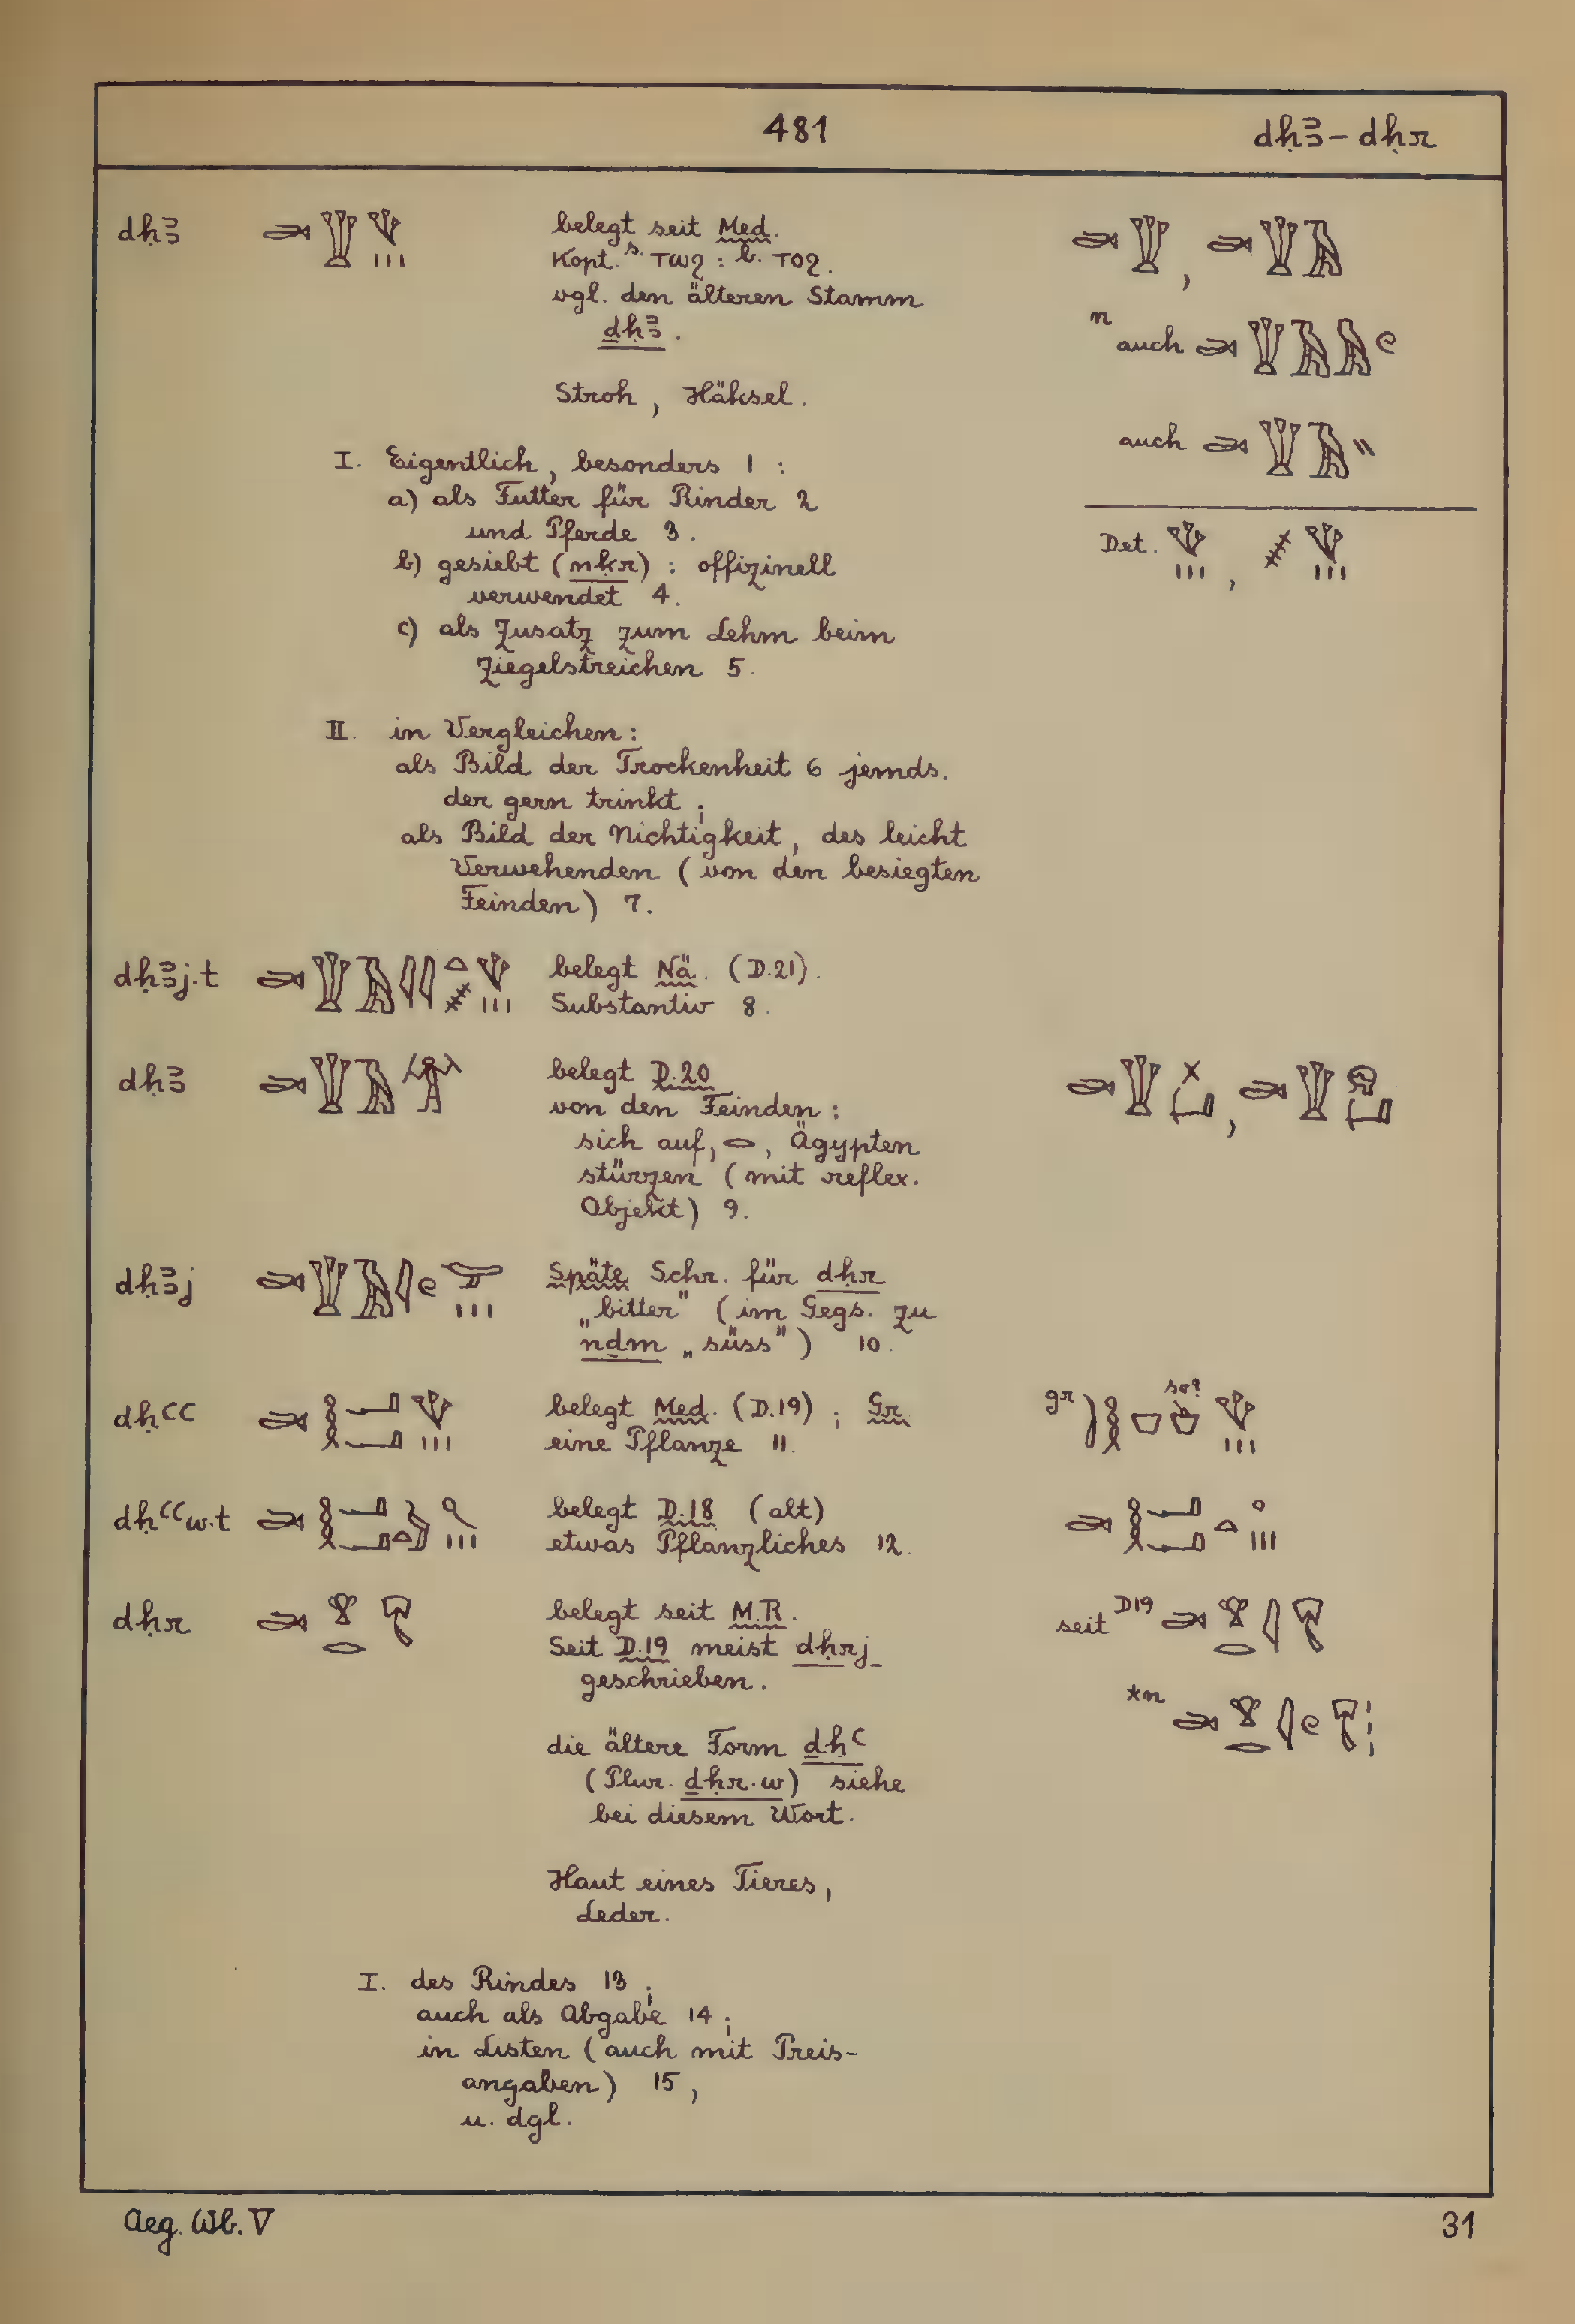 481
dḥꜣ – dḥr
dḥꜣ
belegt seit Med.
Kopt. s. ⲧⲱϩ : b. ⲧⲟϩ.
vgl. den älteren Stamm
ḏḥꜣ.
n auch
Stroh, Häksel.
auch
I. Eigentlich, besonders 1 :
a) als Futter für Rinder 2
und Pferde 3.
Det.
b) gesiebt (nḳr) : offizinell
verwendet 4.
c) als Zusatz zum Lehm beim
Ziegelstreichen 5.
II. in Vergleichen :
als Bild der Trockenheit 6 jemds.
der gern trinkt ;
als Bild der Nichtigkeit, des leicht
Verwehenden (von den besiegten
Feinden) 7.
dḥꜣj.t belegt Nä. (D.21).
Substantiv 8.
dḥꜣ belegt D.20
von den Feinden :
sich auf, 𓂋, Ägypten
stürzen (mit reflex.
Objekt) 9.
dḥꜣj Späte Schr. für dḥr
„bitter" (im Gegs. zu
nḏm „süss") 10.
dḥꜥꜥ belegt Med. (D.19) ; Gr. gr so?
eine Pflanze 11.
dḥꜥꜥw.t belegt D.18 (alt)
etwas Pflanzliches 12.
dḥr belegt seit M.R. seit D19
Seit D.19 meist dḥrj
geschrieben.
*n
die ältere Form ḏḥꜥ
(Plur. ḏḥr.w) siehe
bei diesem Wort.
Haut eines Tieres,
Leder.
I. des Rindes 13 ;
auch als Abgabe 14 ;
in Listen (auch mit Preis-
angaben) 15,
u. dgl.
Aeg. Wb. V
31